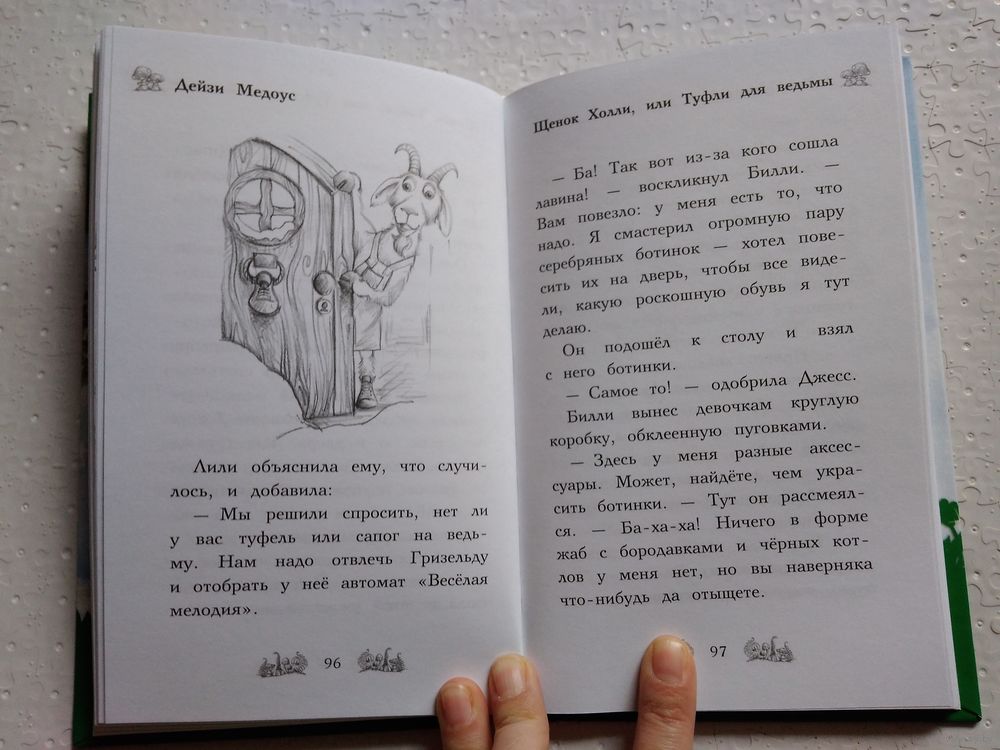 Дейзи Медоус
Лили объяснила ему, что случи-
лось, и добавила:
— Мы решили спросить, нет ли
у вас туфель или сапог на ведь-
му. Нам надо отвлечь Гризельду
и отобрать у неё автомат «Весёлая
мелодия».
96
Щенок Холли, или Туфли для ведьмы
— Ба! Так вот из-за кого сошла
лавина! — воскликнул Билли. —
Вам повезло: у меня есть то, что
надо. Я смастерил огромную пару
серебряных ботинок — хотел пове-
сить их на дверь, чтобы все виде-
ли, какую роскошную обувь я тут
делаю.
Он подошёл к столу и взял
с него ботинки.
— Самое то! — одобрила Джесс.
Билли вынес девочкам круглую
коробку, обклеенную пуговками.
— Здесь у меня разные аксес-
суары. Может, найдёте, чем укра-
сить ботинки. — Тут он рассмеял-
ся. — Ба-ха-ха! Ничего в форме
жаб с бородавками и чёрных кот-
лов у меня нет, но вы наверняка
что-нибудь да отыщете.
97